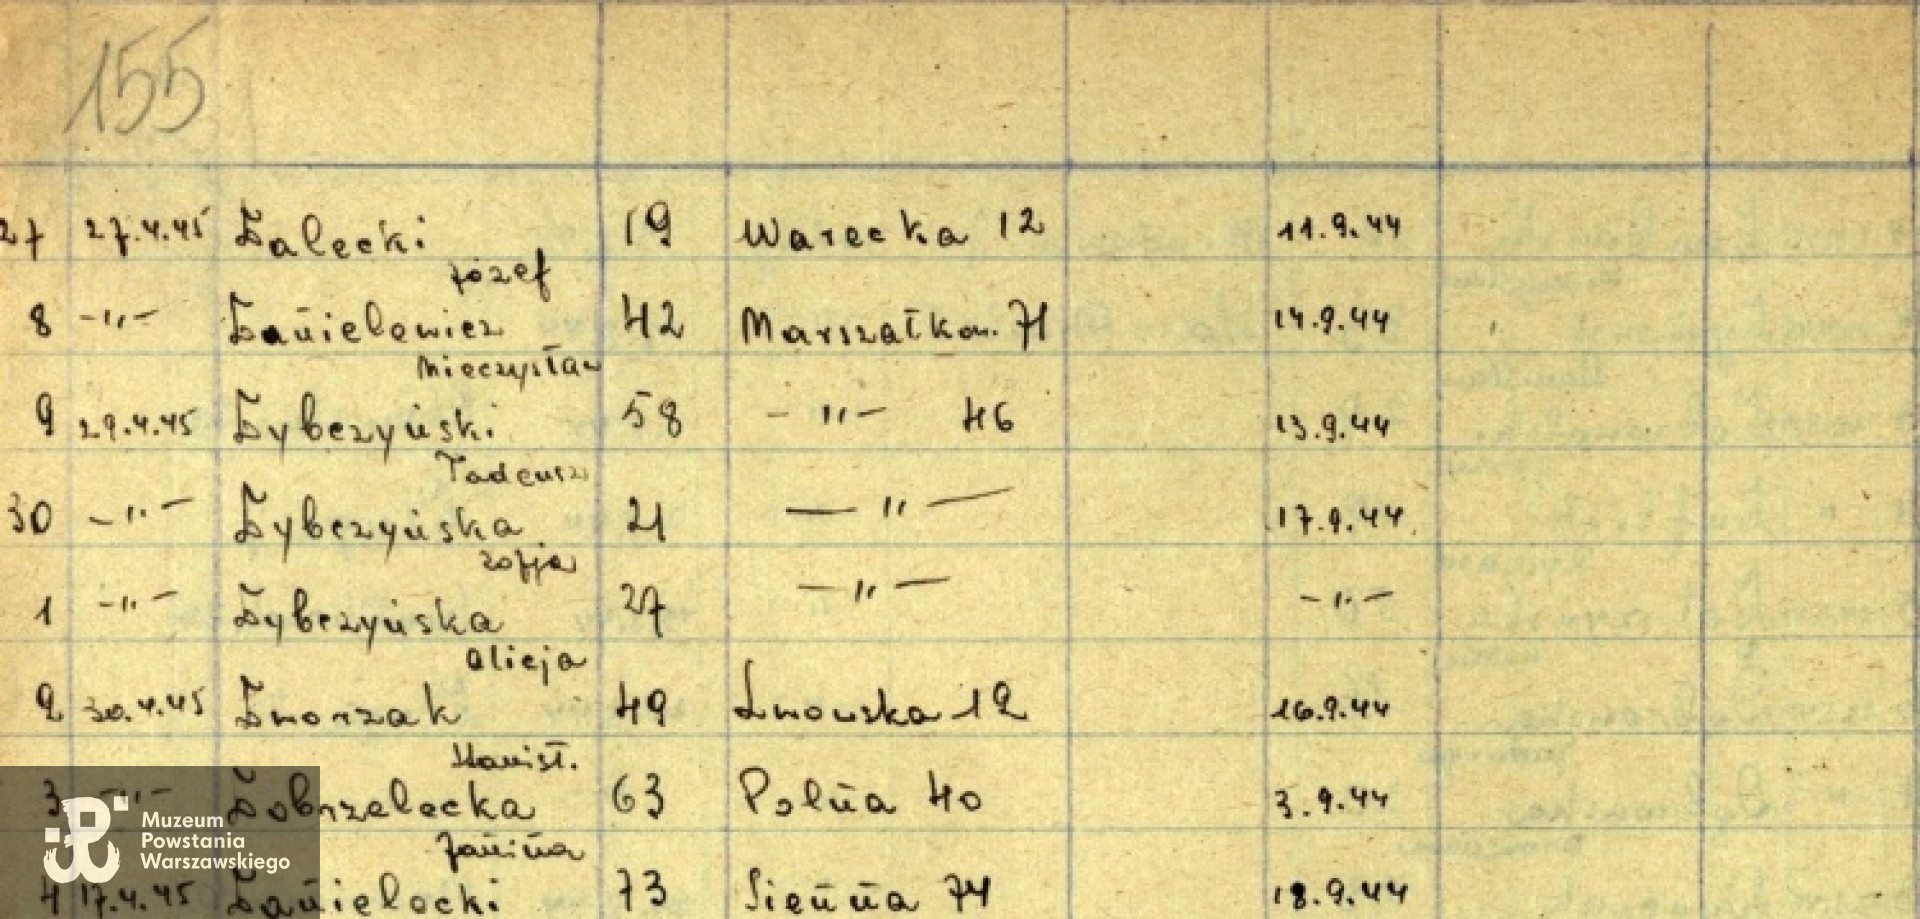 155
27 27.4.45 Zalecki 19 Warecka 12 11.9.44
Józef
8 -"- Danielewicz 42 Marszałkow. 71 14.9.44
Mieczysław
9 29.4.45 Dybczyński 58 -"- 46 13.9.44
Tadeusz
30 -"- Dybczyńska 21 -"- 17.9.44
Zofja
1 -"- Dybczyńska 27 -"- -"-
Alicja
2 30.4.45 Dworzak 49 Lwowska 12 16.9.44
Stanisł.
3 -"- Dobrzelecka 63 Polna 40 3.9.44
Janina
4 17.4.45 Danielecki 73 Sienna 74 18.9.44
Muzeum
Powstania
Warszawskiego